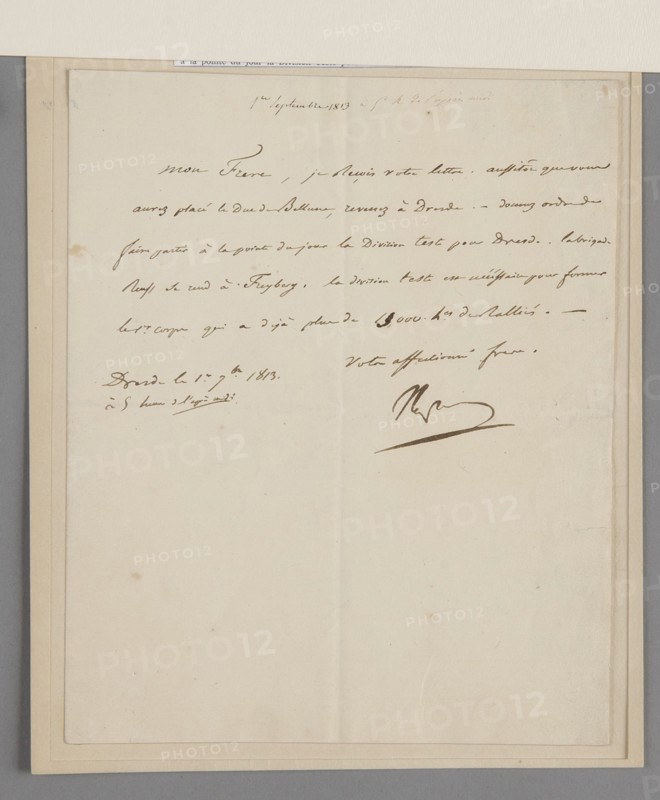 à la pointe du jour la Division
1er Septembre 1813 à 5h de l'après midi
mon Frere, je Reçois votre lettre. aussitôt que vous
aurez placé le Duc de Bellune, revenez à Dresde. – donnez ordre de
faire partir à la pointe du jour la Division teste pour Dresde. la brigade
Reuss se rend à Freyberg. la division teste est nécéssaire pour former
le 1er corps qui a déjà plus de 15000 hes de Ralliés. —
Votre affectionné frere.
Dresde le 1er 7bre 1813.
à 5 heures de l'après midi
PHOTO12